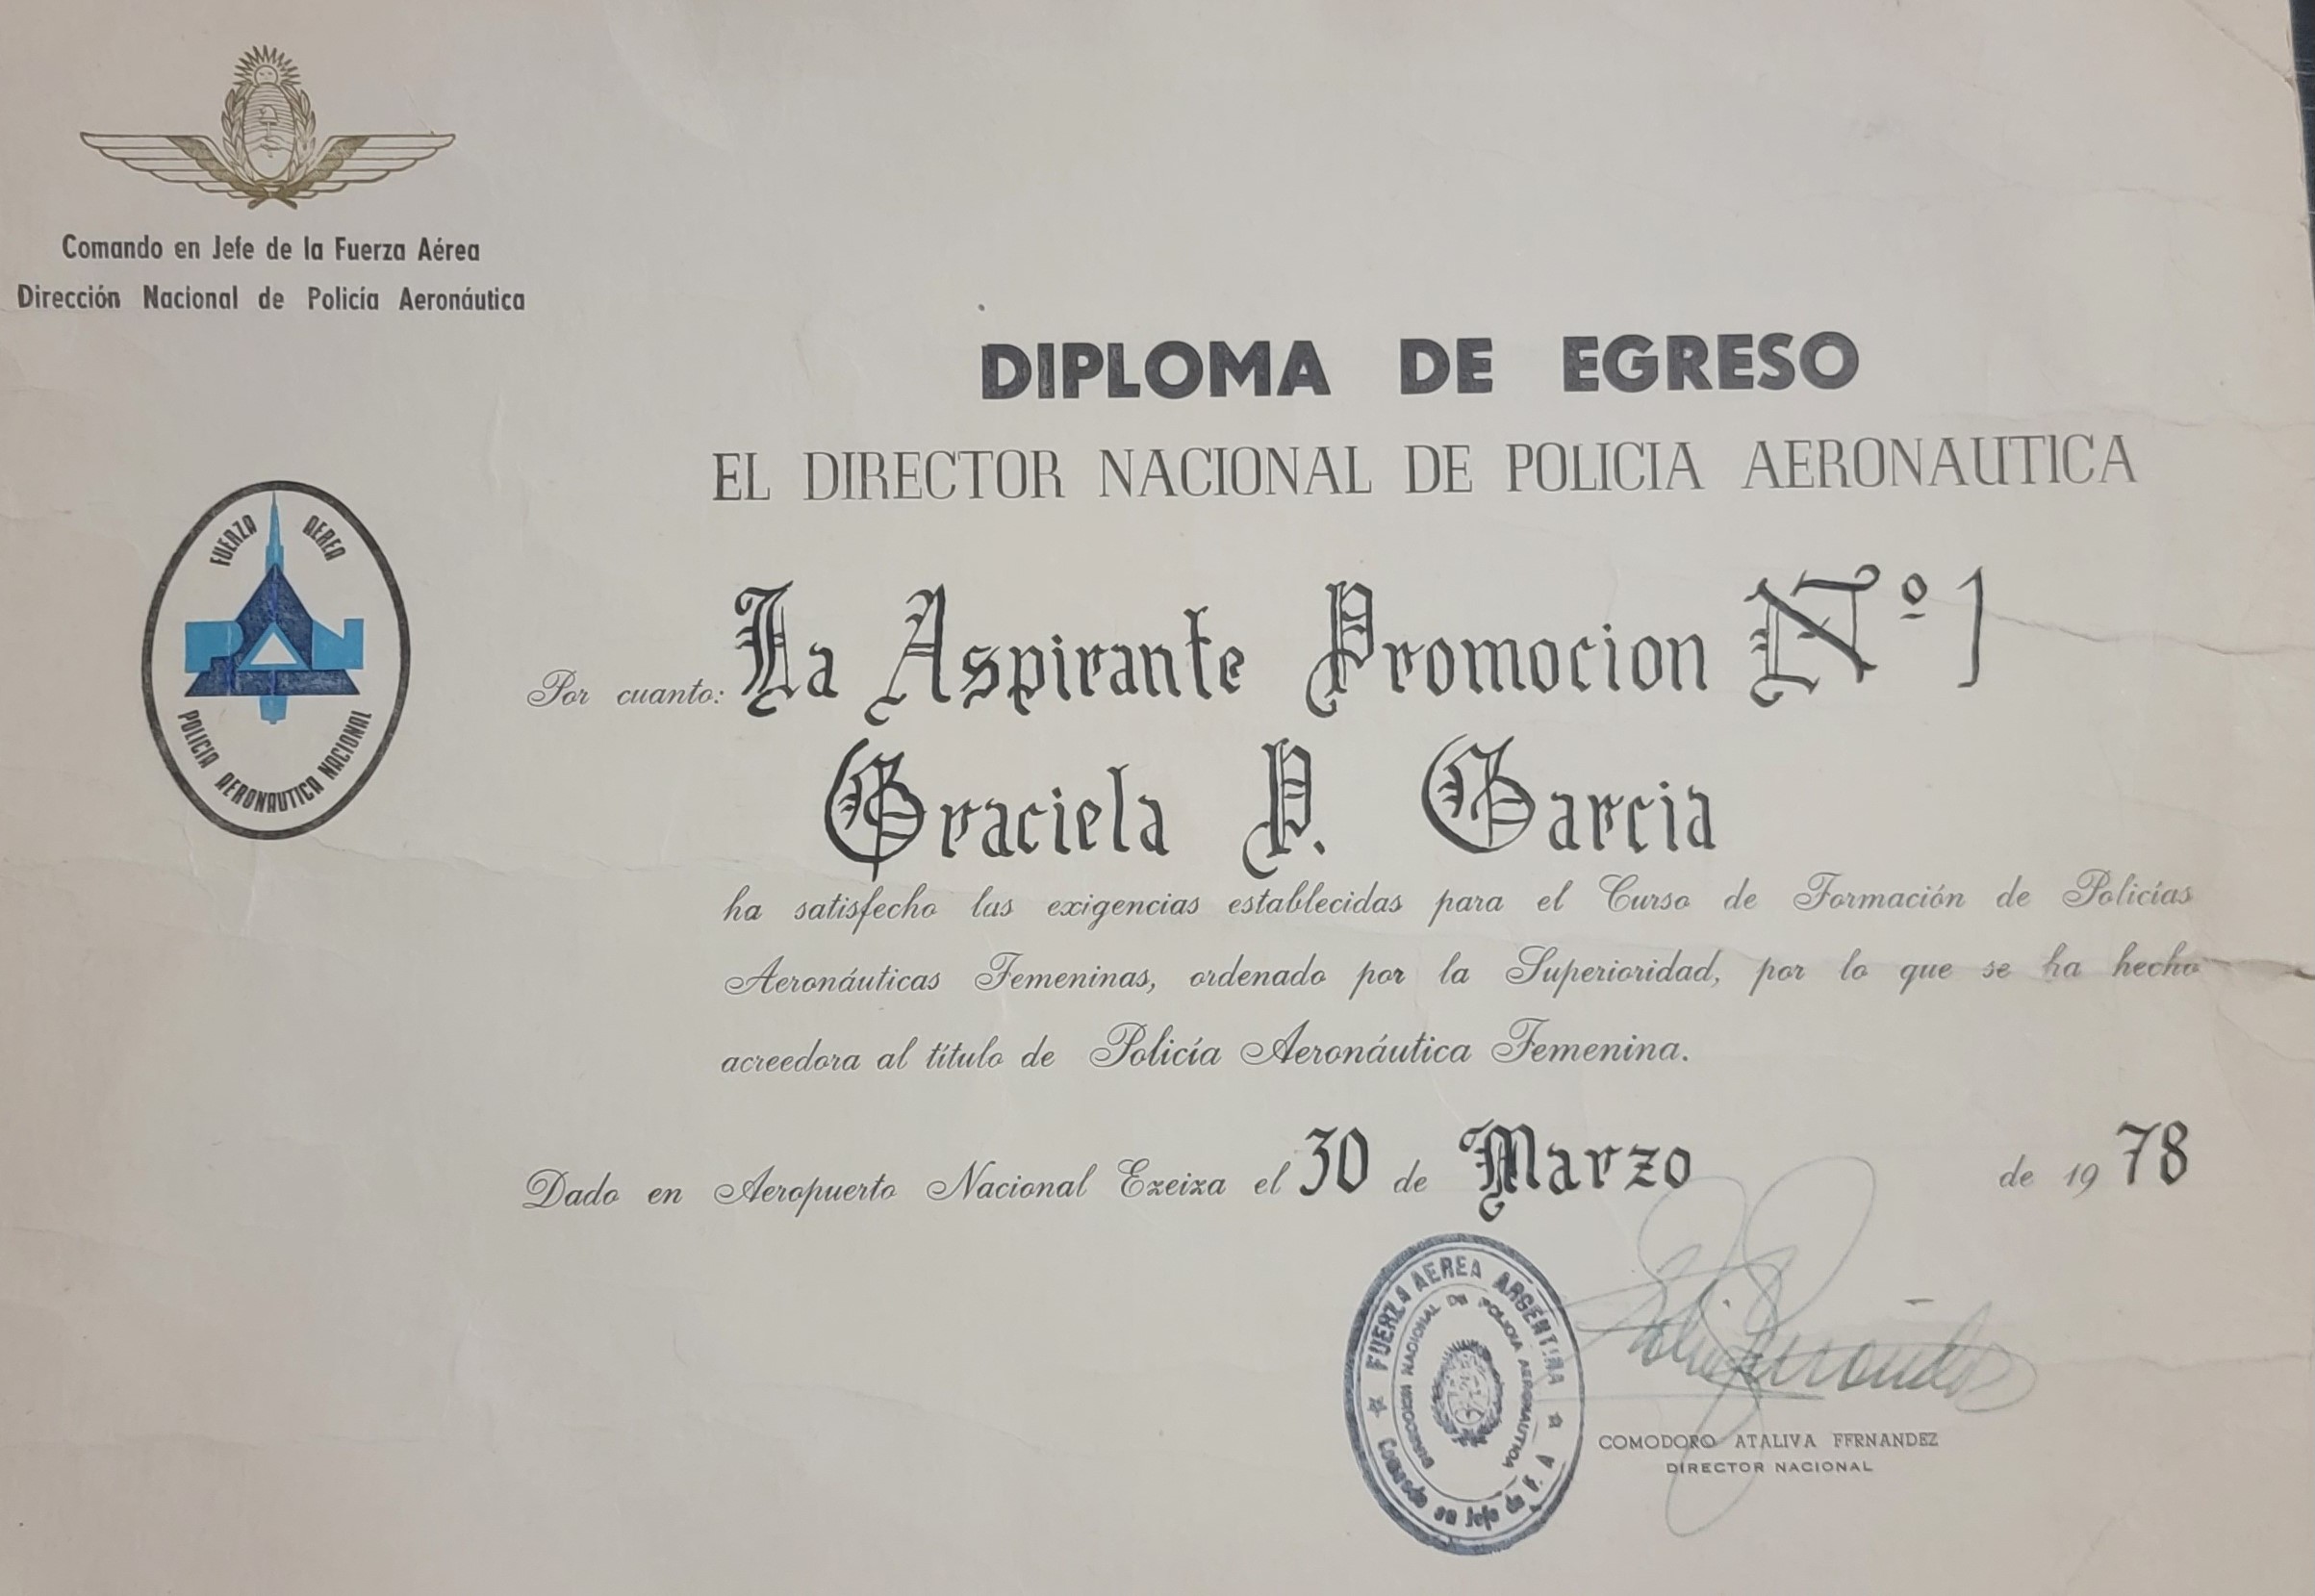 Comando en Jefe de la Fuerza Aérea
Dirección Nacional de Policía Aeronáutica
DIPLOMA DE EGRESO
EL DIRECTOR NACIONAL DE POLICIA AERONAUTICA
FUERZA AEREA
PAN
POLICIA AERONAUTICA NACIONAL
Por cuanto: La Aspirante Promocion Nº 1
Graciela P. Garcia
ha satisfecho las exigencias establecidas para el Curso de Formación de Policías
Aeronáuticas Femeninas, ordenado por la Superioridad, por lo que se ha hecho
acreedora al título de Policía Aeronáutica Femenina.
Dado en Aeropuerto Nacional Ezeiza el 30 de Marzo de 19 78
FUERZA AEREA ARGENTINA
DIRECCION NACIONAL DE POLICIA AERONAUTICA
Comando en Jefe de F. A
COMODORO ATALIVA FFRNANDEZ
DIRECTOR NACIONAL